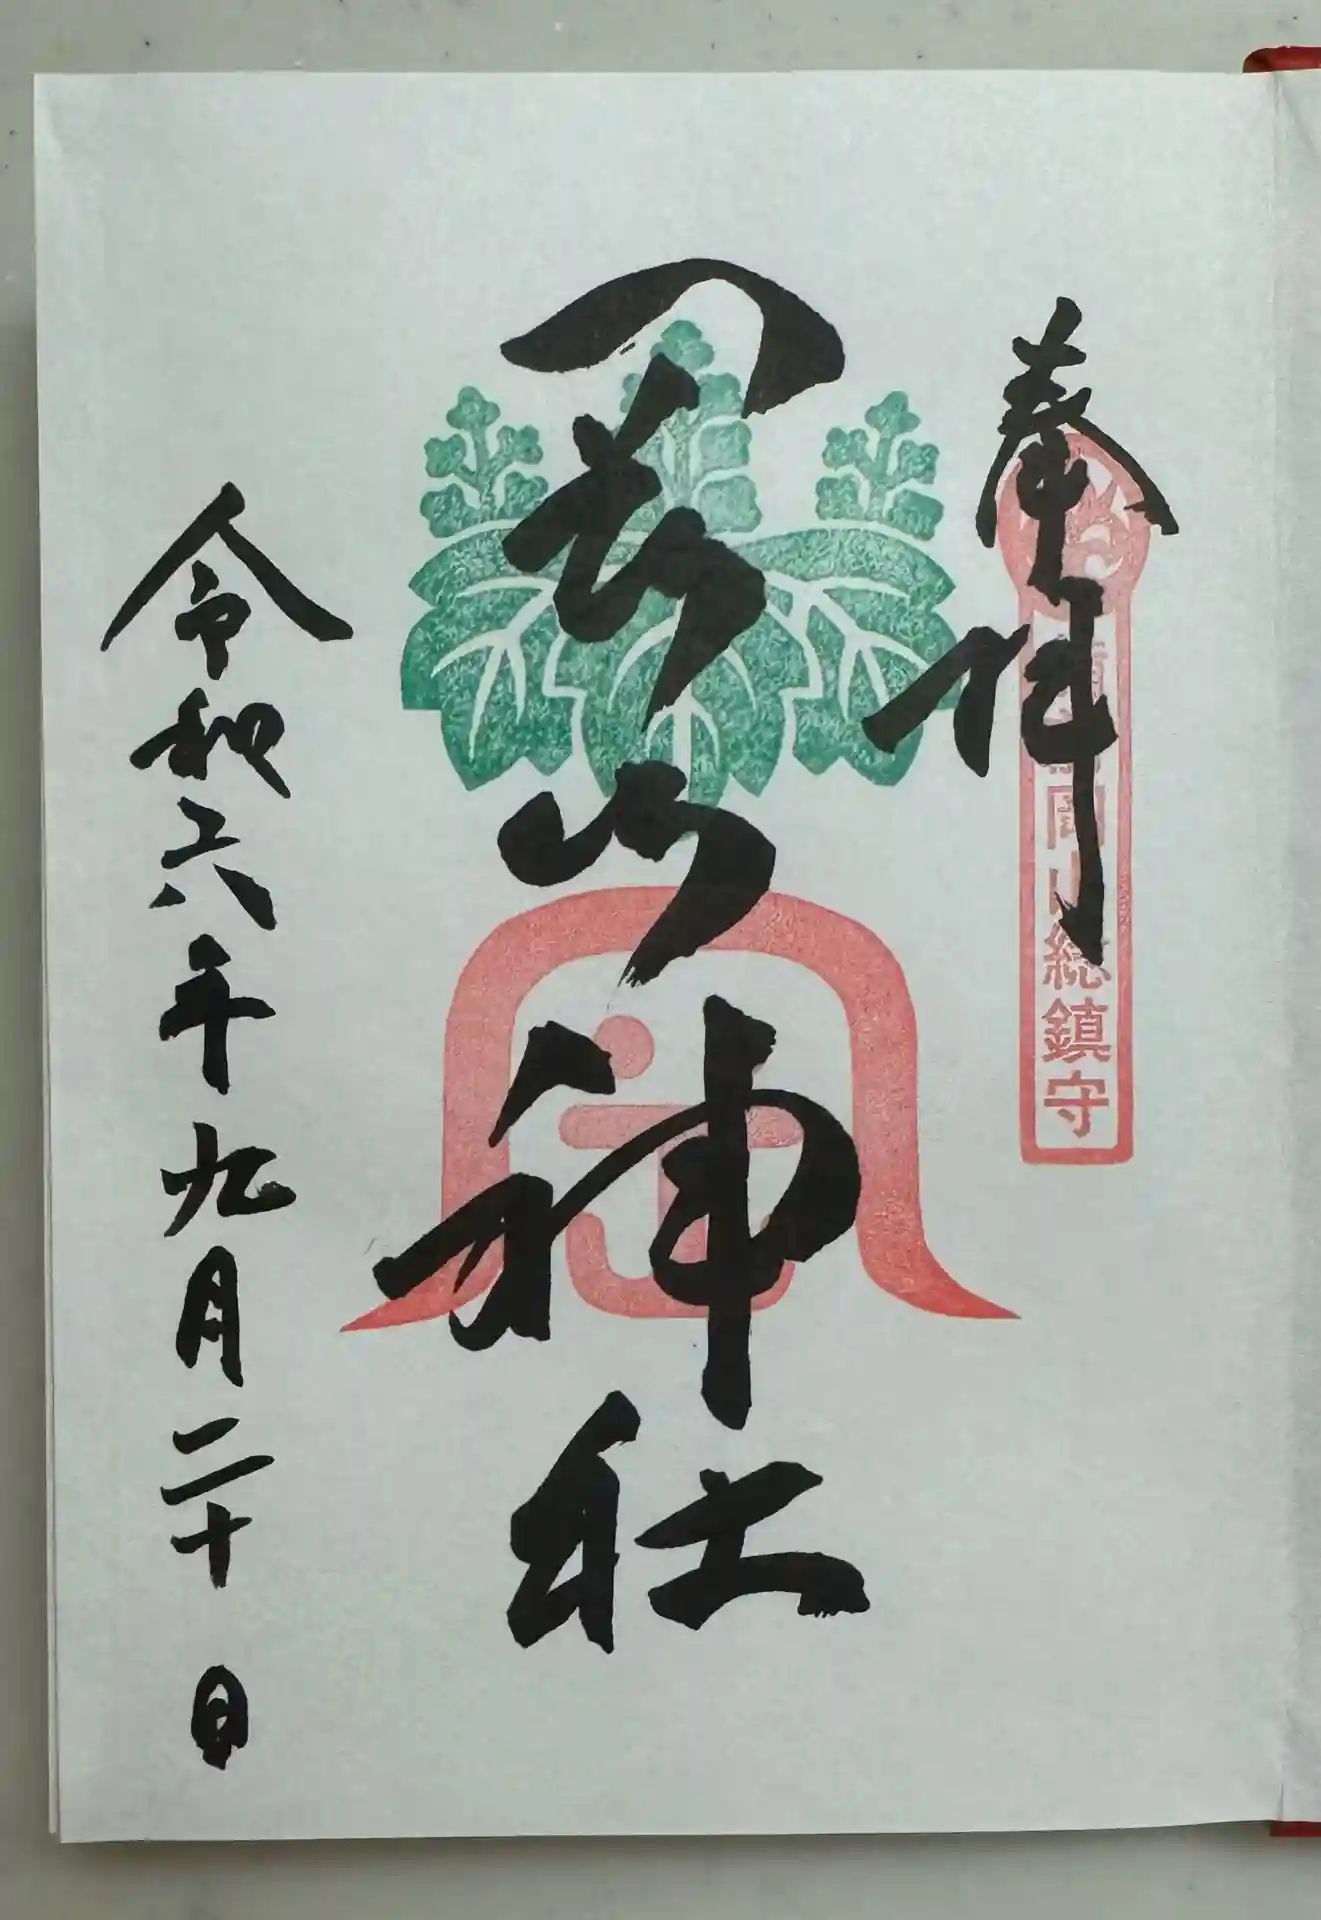 奉拝
岡山総鎮守
岡山神社
令和六年九月二十日